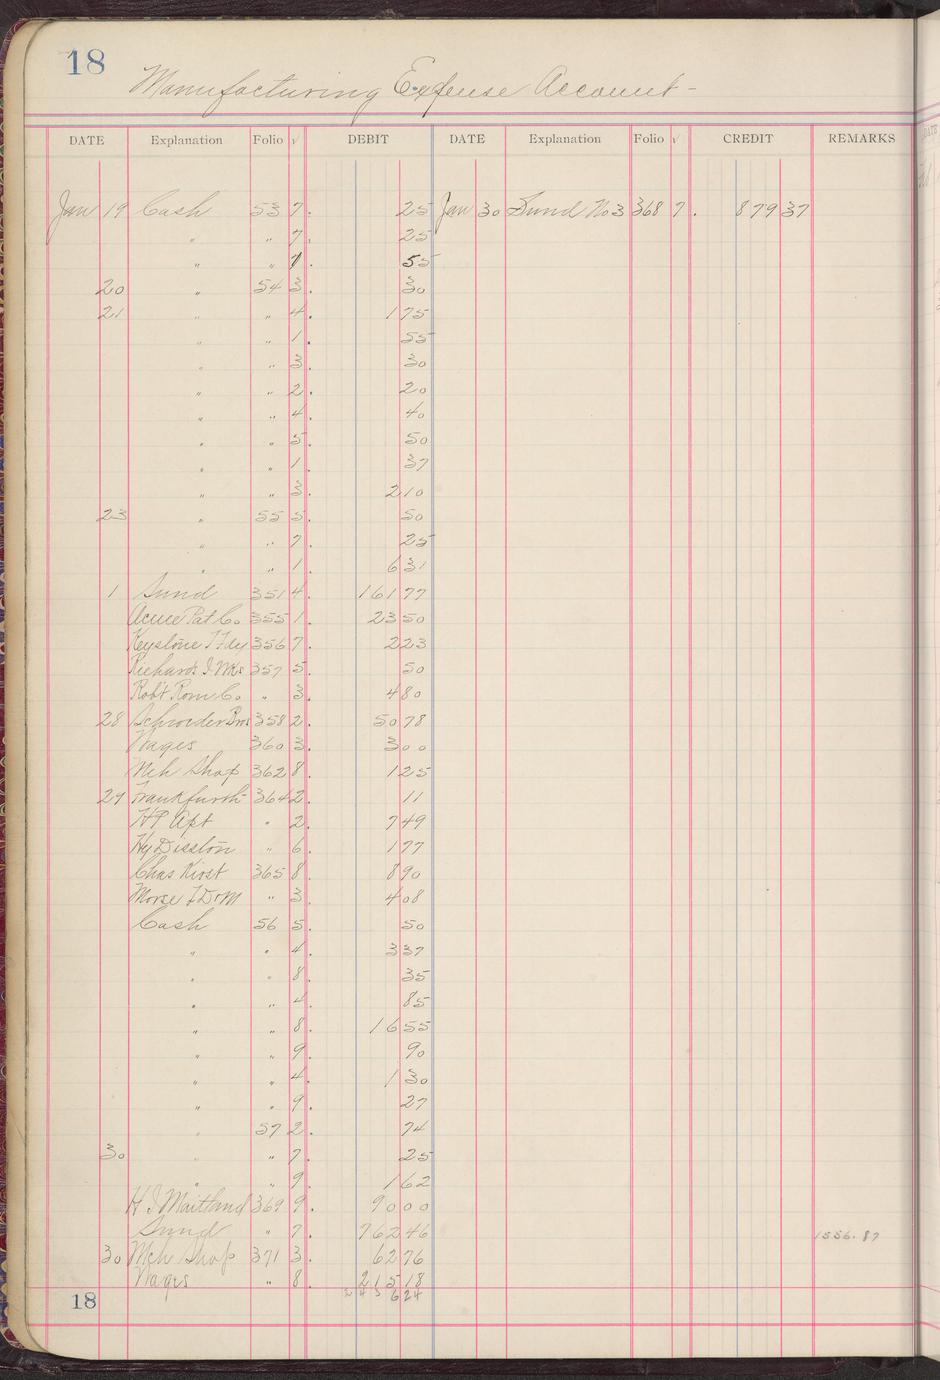 18
Manufacturing Expense Account -
DATE Explanation Folio √ DEBIT DATE Explanation Folio √ CREDIT REMARKS
Jan 19 Cash 53 7. 25 Jan 30 Sund No 3 368 7. 879 37
" " 7. 25
" " 7. 55
20 " 54 3. 30
21 " " 4. 1 75
" " 1. 55
" " 3. 30
" " 2. 20
" " 4. 40
" " 5. 50
" " 1. 37
" " 3. 2 10
23 " 55 5. 50
" " 7. 25
" " 1. 6 31
1 Sund 351 4. 161 77
Acme Pat Co. 355 1. 23 50
Keystone T Fdy 356 7. 2 23
Richards I Wks 357 5. 50
Robt Rom Co. " 3. 4 80
28 Schroeder Bros 358 2. 50 78
Wages 360 3. 3 00
Mch Shop 362 8. 1 25
29 Frankfurth 364 2. 11
HP Apt " 2. 7 49
Hy Disston " 6. 1 77
Chas Kiost 365 8. 8 90
Morse T D & M " 3. 4 08
Cash 56 5. 50
" " 4. 3 37
" " 8. 35
" " 4. 85
" " 8. 16 55
" " 9. 90
" " 4. 1 30
" " 9. 27
" 57 2. 74
30 " " 7. 25
" " 9. 1 62
H I Maitland 369 9. 90 00
Sund " 7. 762 46
1556.87
30 Mch Shop 371 3. 62 76
Wages " 8. 215 18
18
2436 24